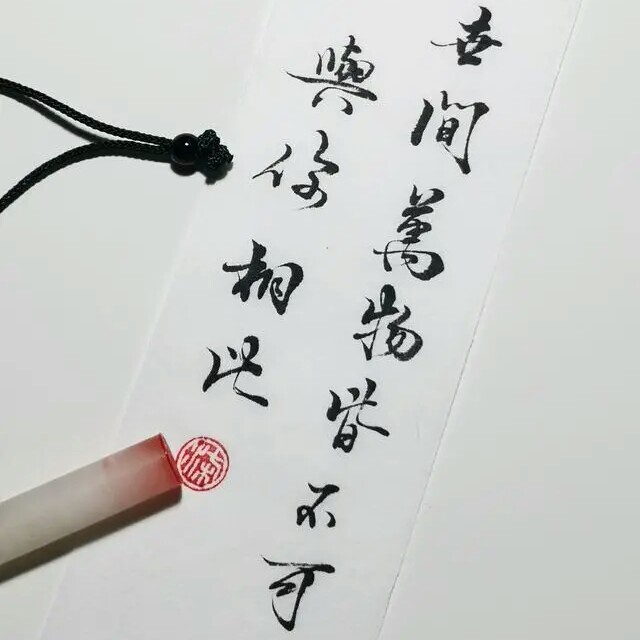 世间萬物皆不可
與你相比